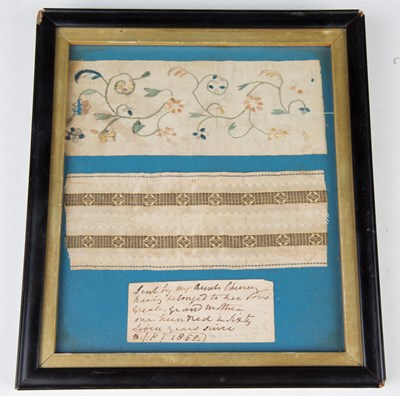 Sent by my Aunt Cheney
having belonged to her Sons
Great-Grandmother
one hundred & sixty
seven years since
1858